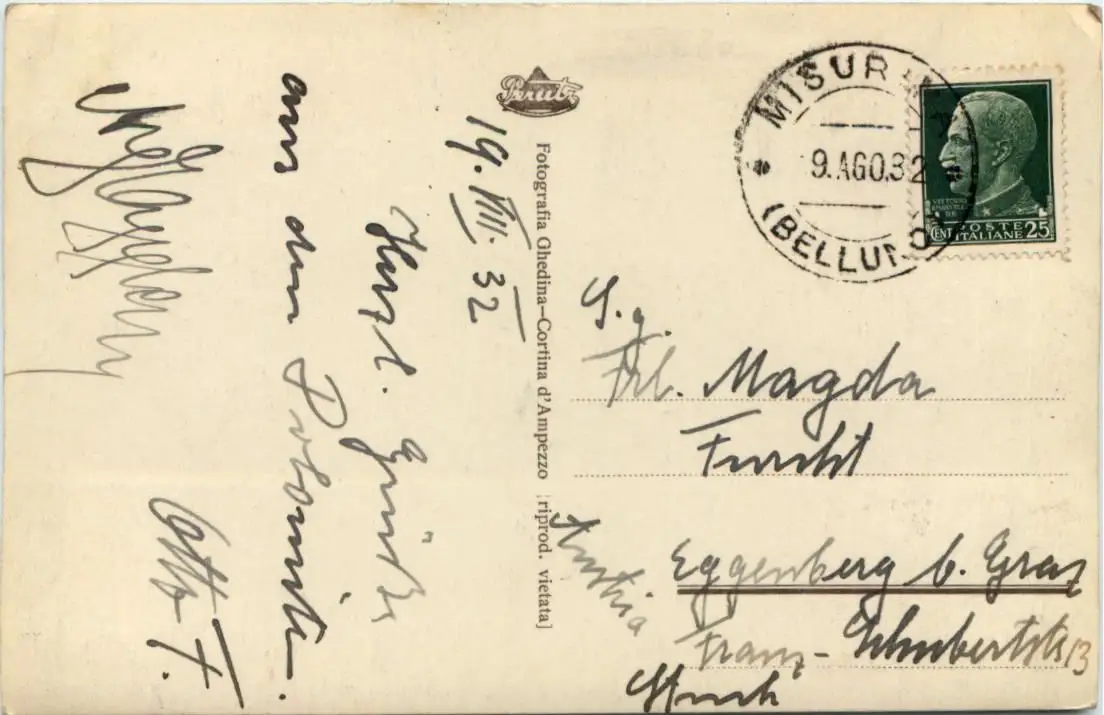 19. VIII. 32
Herzl. Grüße
aus den Dolomiten.
Otto F.
Perutz
Fotografia Ghedina—Cortina d'Ampezzo [riprod. vietata]
MISURINA
9. AGO. 32
(BELLUNO)
VITTORIO
EMANUELE
CENT 25
POSTE
ITALIANE
S. g.
Frl. Magda
Furcht
Eggenberg b. Graz
Franz-Schubertstr 13
Austria